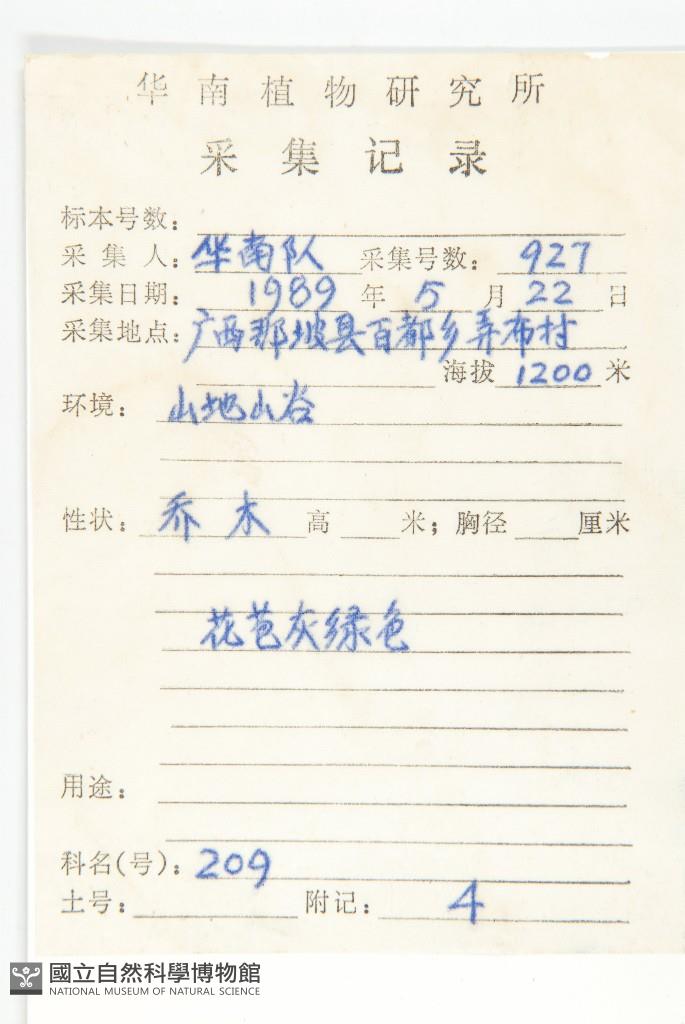 华南植物研究所
采集记录
标本号数：
采集人：华南队 采集号数：927
采集日期：1989年5月22日
采集地点：广西那坡县百都乡弄布村
海拔1200米
环境：山地山谷
性状：乔木 高 米；胸径 厘米
花苞灰绿色
用途：
科名(号)：209
土号： 附记：4
國立自然科學博物館
NATIONAL MUSEUM OF NATURAL SCIENCE